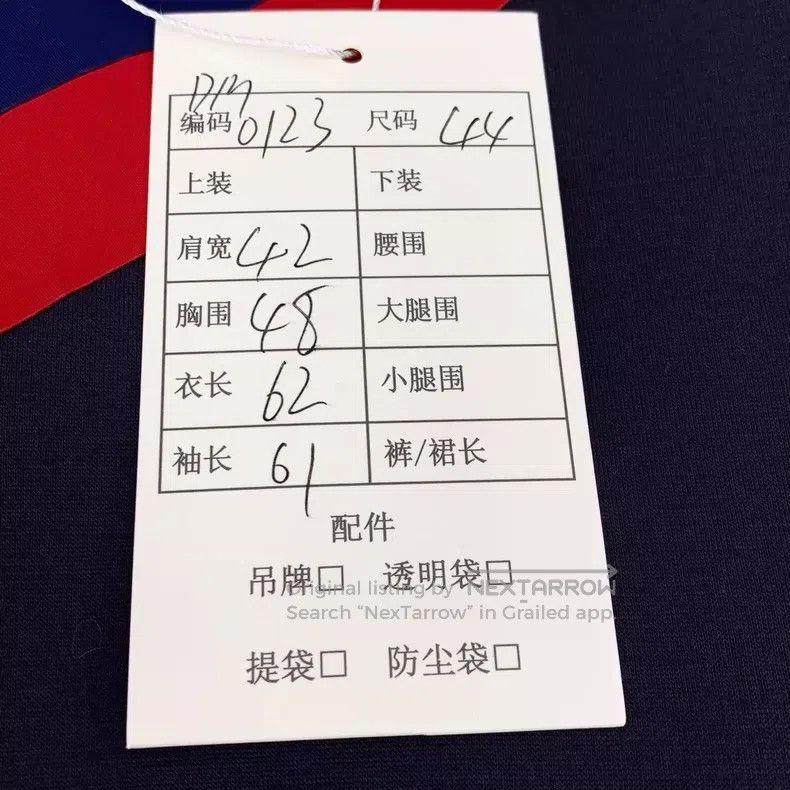 编码 0123 尺码 44
上装 下装
肩宽 42 腰围
胸围 48 大腿围
衣长 62 小腿围
袖长 61 裤/裙长
配件
吊牌□ 透明袋□
Original listing by NEXTARROW
Search “NexTarrow” in Grailed app.
提袋□ 防尘袋□